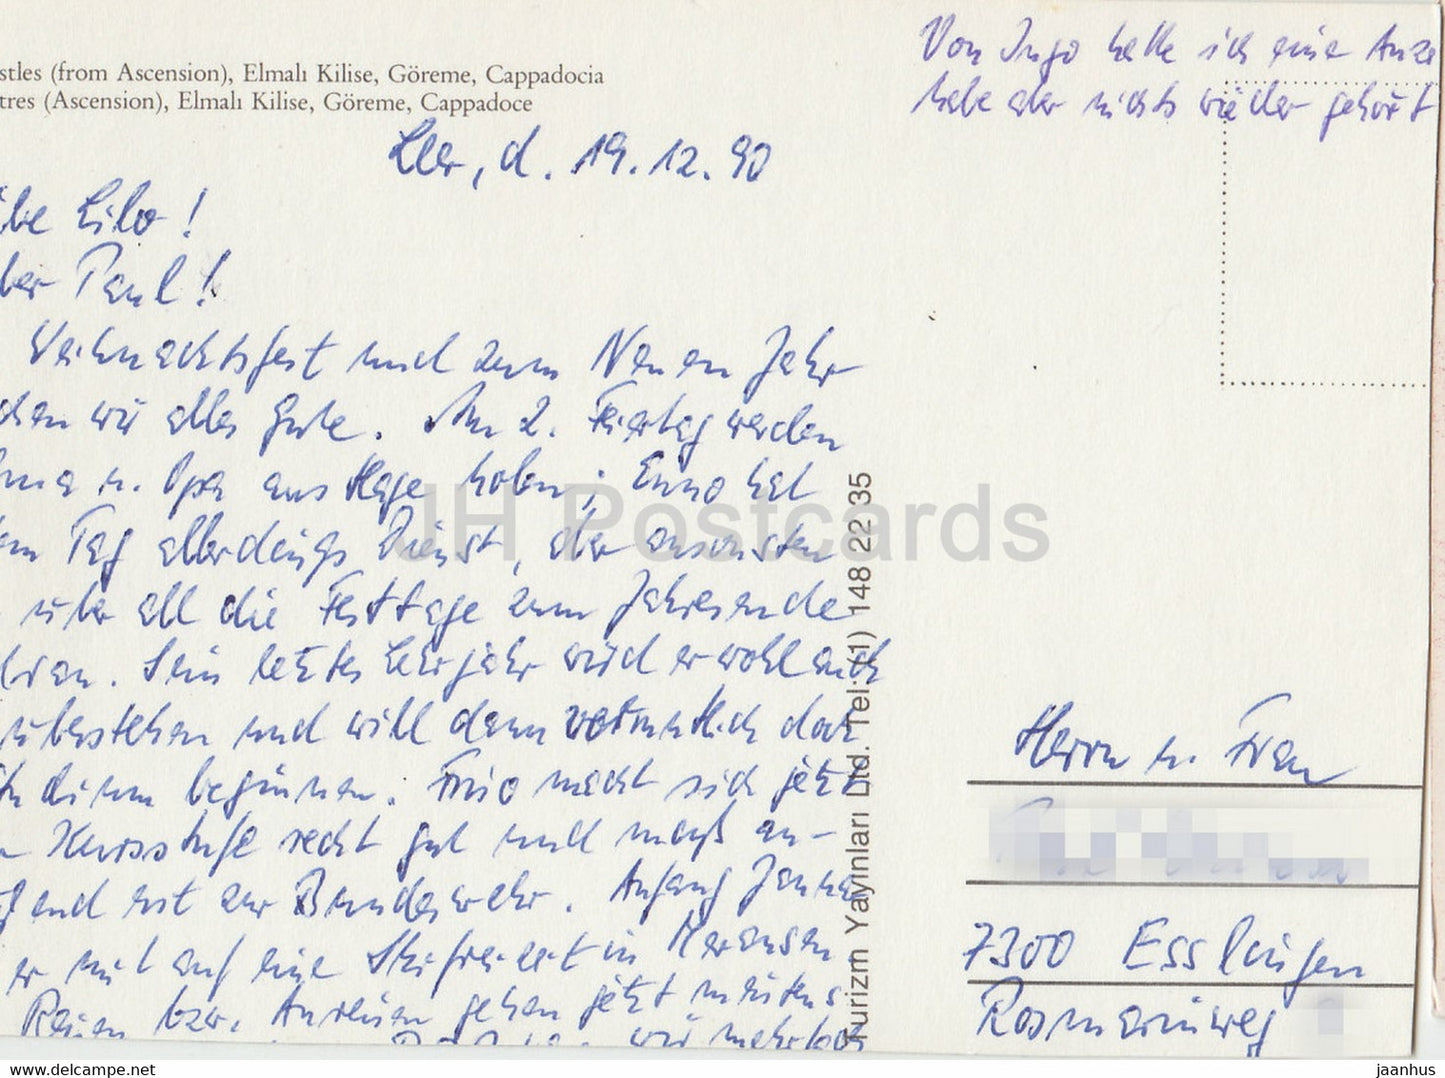 stles (from Ascension), Elmalı Kilise, Göreme, Cappadocia
tres (Ascension), Elmalı Kilise, Göreme, Cappadoce
Von Ingo hatte ich eine Anze
habe aber nichts wieder gehört
Leer, d. 19.12.90
be Lilo!
ber Paul!
Weihnachtsfest und zum Neuen Jahr
chen wir alles Gute. Am 2. Feiertag werden
Oma u. Opa aus Hage holen; Enno hat
Tag allerdings Dienst, aber ansonsten
über all die Festtage zum Jahresende
Sein letztes Lehrjahr wird er wohl auch
überstehen und will dann vermutlich doch
beginnen. Frio macht sich jetzt
Kursstufe recht gut und muß an-
end erst zur Bundeswehr. Anfang Januar
er mit auf eine Skifreizeit in Meransen
Reisen bzw. Anreisen gehen jetzt meistens
wir mehrfach
Turizm Yayınları Ltd. Tel: (1) 148 22 35
Herrn u. Frau
7300 Esslingen
Rosmarinweg
JH Postcards
www.delcampe.net
jaanhus